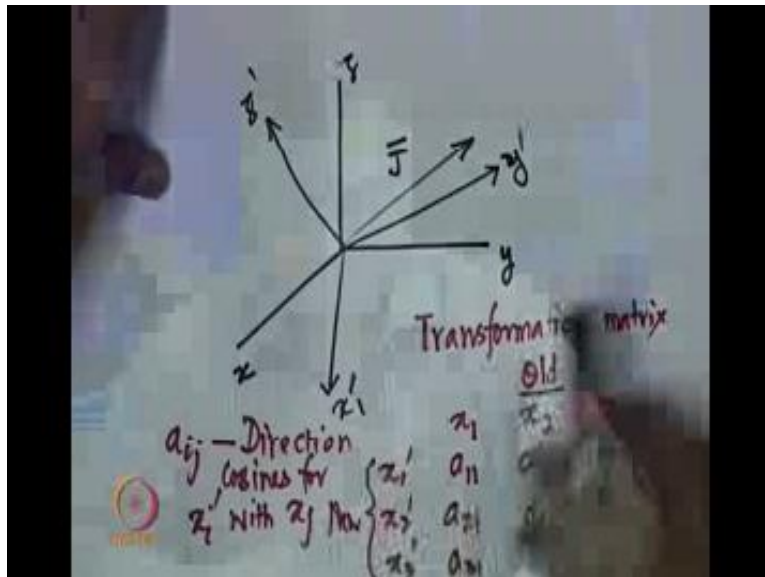 z
z'
J̄
y'
y
x
x'₁
Transformation matrix
Old
x₁ x₂
aᵢⱼ — Direction
Cosines for
xᵢ' with xⱼ
x₁' a₁₁
x₂' a₂₁
x₃' a₃₁